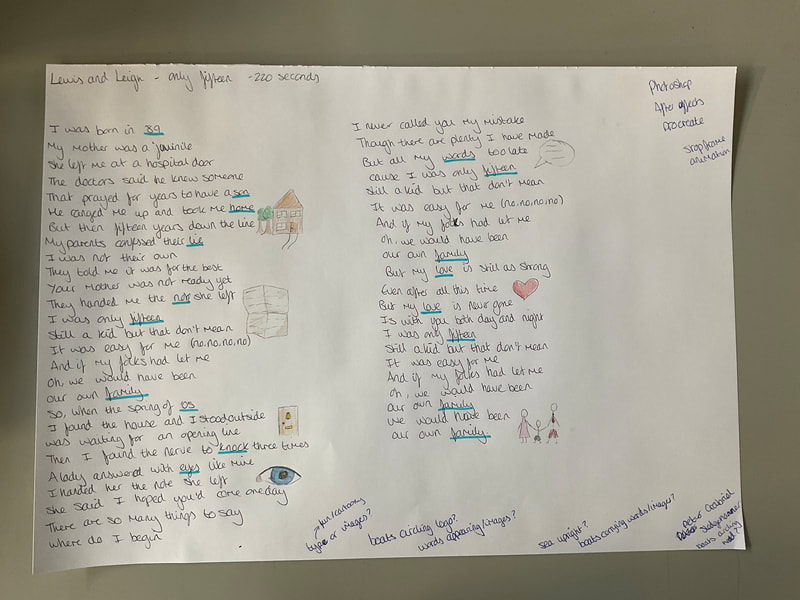 Lewis and Leigh - only fifteen - 220 seconds
I was born in 89
My Mother was a juvinile
She left me at a hospital door
The doctors said he knew someone
That prayed for years to have a son
He ranged me up and took me home
But then fifteen years down the line
My parents confessed their lie
I was not their own
They told me it was for the best
Your Mother was not ready yet
They handed me the note she left
I was only fifteen
Still a kid but that don't mean
It was easy for me (no,no,no,no)
And if my folks had let me
Oh, we would have been
our own family.
So, when the spring of 05
I found the house and I stood outside
was waiting for an opening line
Then I found the nerve to knock three times
A lady answered with eyes like mine
I handed her the note she left
She said I hoped you'd come one day
There are so many things to say
where do I begin
I never called you my mistake
Though there are plenty I have made
But all my words too late
cause I was only fifteen
Still a kid but that don't mean
It was easy for me (no,no,no,no)
And if my folks had let me
Oh, we would have been
our own family
But my love is still as strong
Even after all this time
But my love is never gone
Is with you both day and night
I was only fifteen
Still a kid but that don't mean
It was easy for me
And if my folks had let me
Oh, we would have been
our own family
we would have been
our own family.
Photoshop
After effects
Procreate
Stop frame
animation
fun/cartoony
type or images?
boats circling logo?
words appearing/images?
sea upright?
boats carrying words/images?
Peter Gabriel
Sledgehammer
boats circling
head?